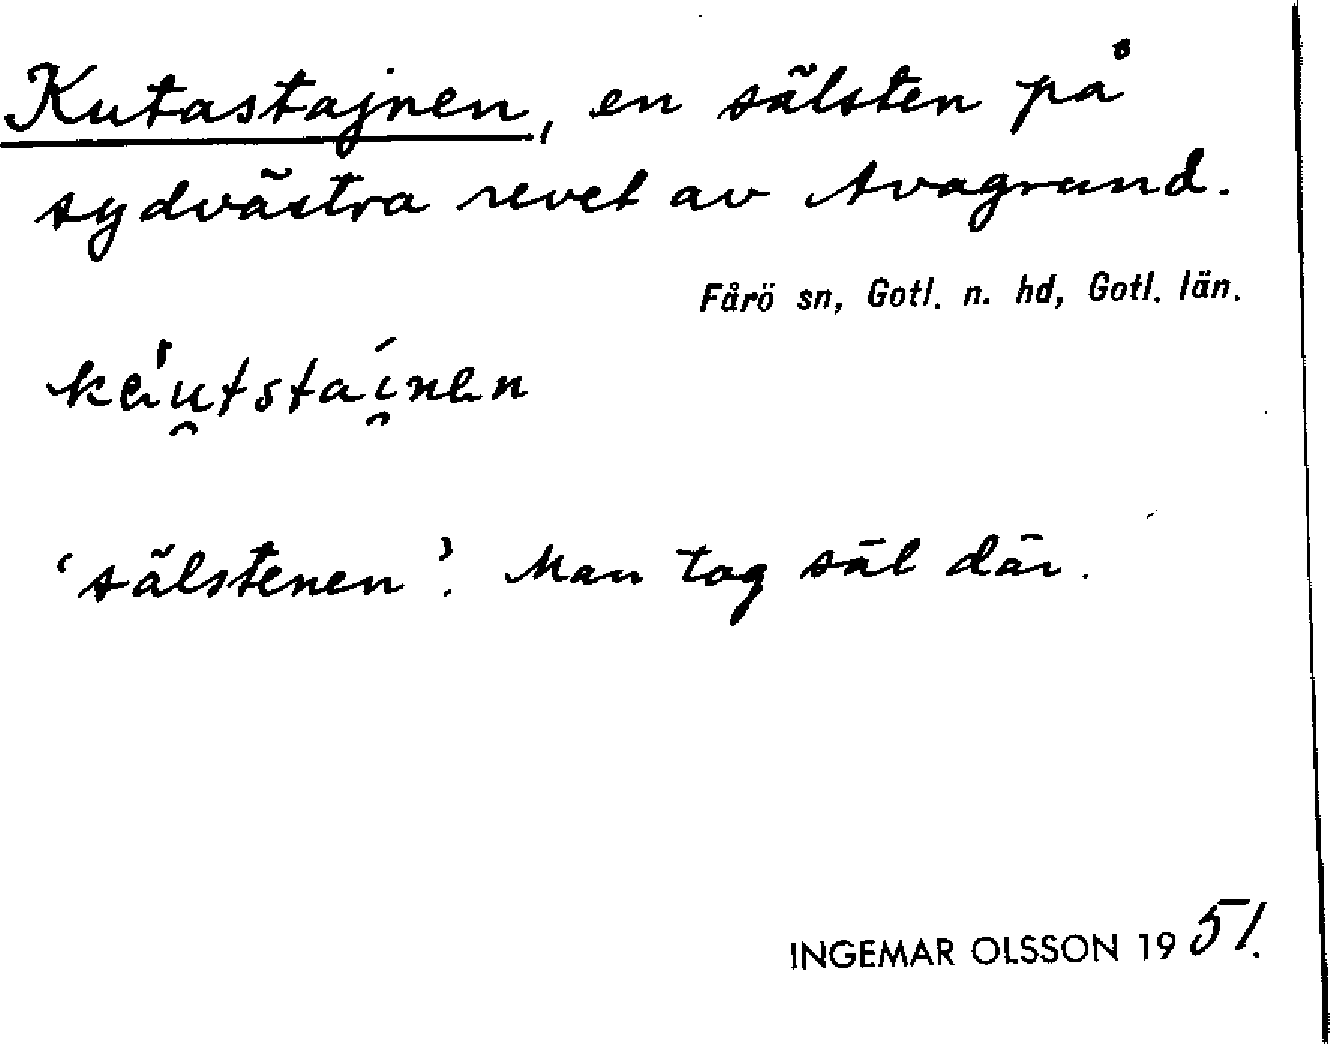 Kutastajnen, en sälsten på
sydvästra revet av Avagrund.
Fårö sn, Gotl. n. hd, Gotl. län.
'sälstenen'. Man tog säl där.
INGEMAR OLSSON 1951.